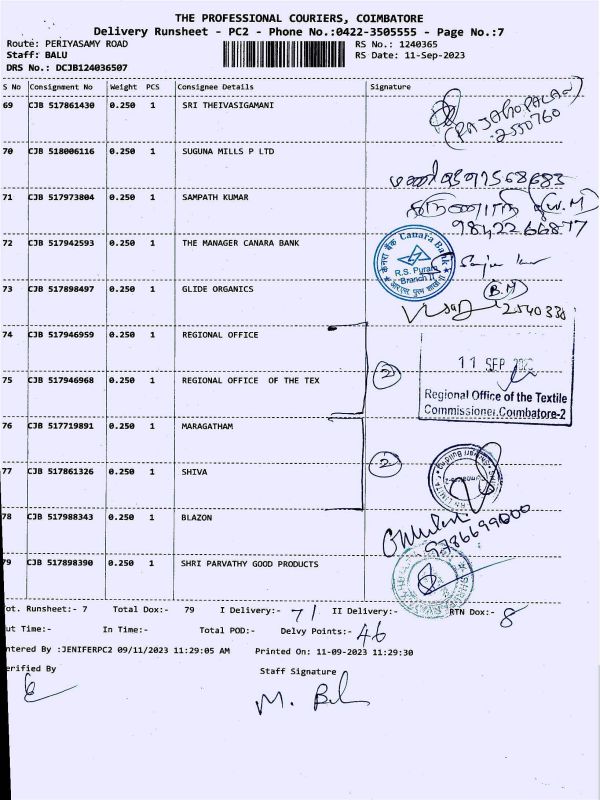 THE PROFESSIONAL COURIERS, COIMBATORE
Delivery Runsheet - PC2 - Phone No.:0422-3505555 - Page No.:7
Route: PERIYASAMY ROAD RS No.: 1240365
Staff: BALU RS Date: 11-Sep-2023
DRS No.: DCJB124036507
S No Consignment No Weight PCS Consignee Details Signature
69 CJB 517861430 0.250 1 SRI THEIVASIGAMANI
(RAJAGOPALAN)
2550760
70 CJB 518006116 0.250 1 SUGUNA MILLS P LTD
71 CJB 517973804 0.250 1 SAMPATH KUMAR
(W.M)
9842266877
72 CJB 517942593 0.250 1 THE MANAGER CANARA BANK
केनरा बैंक Canara Bank
R.S. Puram
Branch II
73 CJB 517898497 0.250 1 GLIDE ORGANICS
(B.M)
2540338
74 CJB 517946959 0.250 1 REGIONAL OFFICE
11 SEP
75 CJB 517946968 0.250 1 REGIONAL OFFICE OF THE TEX 2
Regional Office of the Textile
Commissioner, Coimbatore-2
76 CJB 517719891 0.250 1 MARAGATHAM
77 CJB 517861326 0.250 1 SHIVA 2
78 CJB 517988343 0.250 1 BLAZON
9786699000
79 CJB 517898390 0.250 1 SHRI PARVATHY GOOD PRODUCTS
ot. Runsheet:- 7 Total Dox:- 79 I Delivery:- 71 II Delivery:- RTN Dox:- 8
ut Time:- In Time:- Total POD:- Delvy Points:- 46
ntered By :JENIFERPC2 09/11/2023 11:29:05 AM Printed On: 11-09-2023 11:29:30
erified By Staff Signature